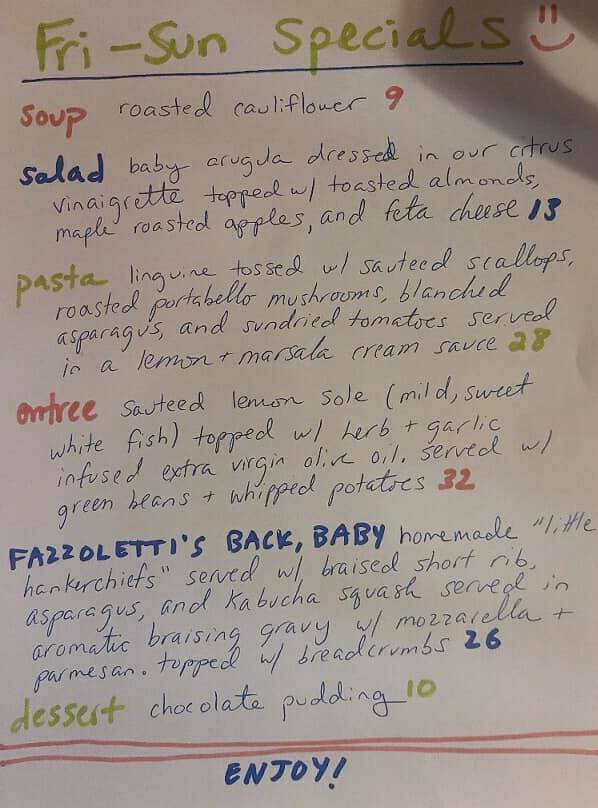 Fri-Sun Specials
soup roasted cauliflower 9
salad baby arugula dressed in our citrus
vinaigrette topped w/ toasted almonds,
maple roasted apples, and feta cheese 13
pasta linguine tossed w/ sauteed scallops,
roasted portabello mushrooms, blanched
asparagus, and sundried tomatoes served
in a lemon + marsala cream sauce 28
entree sauteed lemon sole (mild, sweet
white fish) topped w/ herb + garlic
infused extra virgin olive oil. served w/
green beans + whipped potatoes 32
FAZZOLETTI'S BACK, BABY homemade "little
hankerchiefs" served w/ braised short rib,
asparagus, and Kabucha squash served in
aromatic braising gravy w/ mozzarella +
parmesan. topped w/ breadcrumbs 26
dessert chocolate pudding 10
ENJOY!